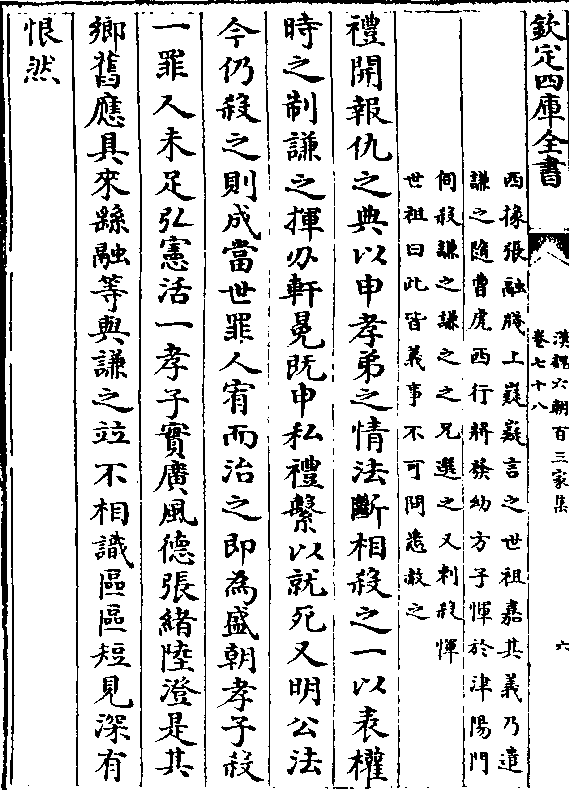 欽定四庫全書
漢魏六朝百三家集
卷七十八
六
西掾張融牋上嶷嶷言之世祖嘉其義乃遣
謙之隨曹虎西行將發幼方子惲於津陽門
伺殺謙之謙之之兄選之又刺殺惲
世祖曰此皆義事不可問悉赦之
禮開報仇之典以申孝弟之情法斷相殺之一以表權
時之制謙之揮刅軒冕既申私禮繫以就死又明公法
今仍殺之則成當世罪人宥而治之即為盛朝孝子殺
一罪人未足弘憲活一孝子實廣風德張緒陸澄是其
鄉舊應具來繇融等與謙之竝不相識區區短見深有
恨然